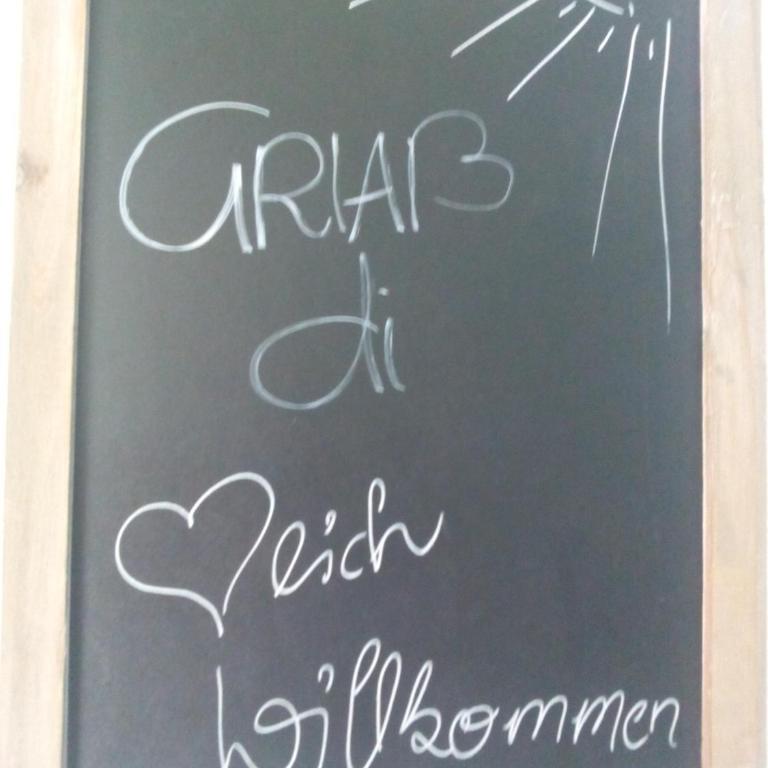 GRIAß
di
♥lich
Willkommen